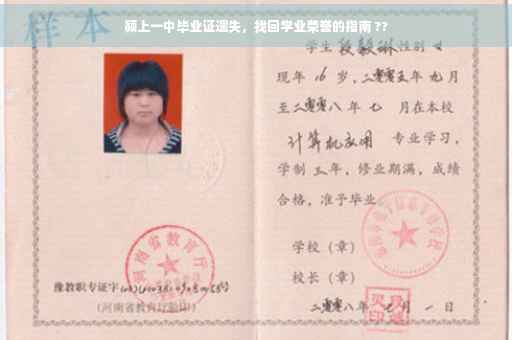 颍上一中毕业证遗失，找回学业荣誉的指南??
样本
学生段毅琳性别女
现年16岁，二零零五年九月
至二零零八年七 月在本校
计算机应用 专业学习，
学制三年，修业期满，成绩
合格，准予毕业
学校（章）
校长（章）
二零零八年七月一日
河南省教育厅
豫教职专证字
（河南省教育厅验印）